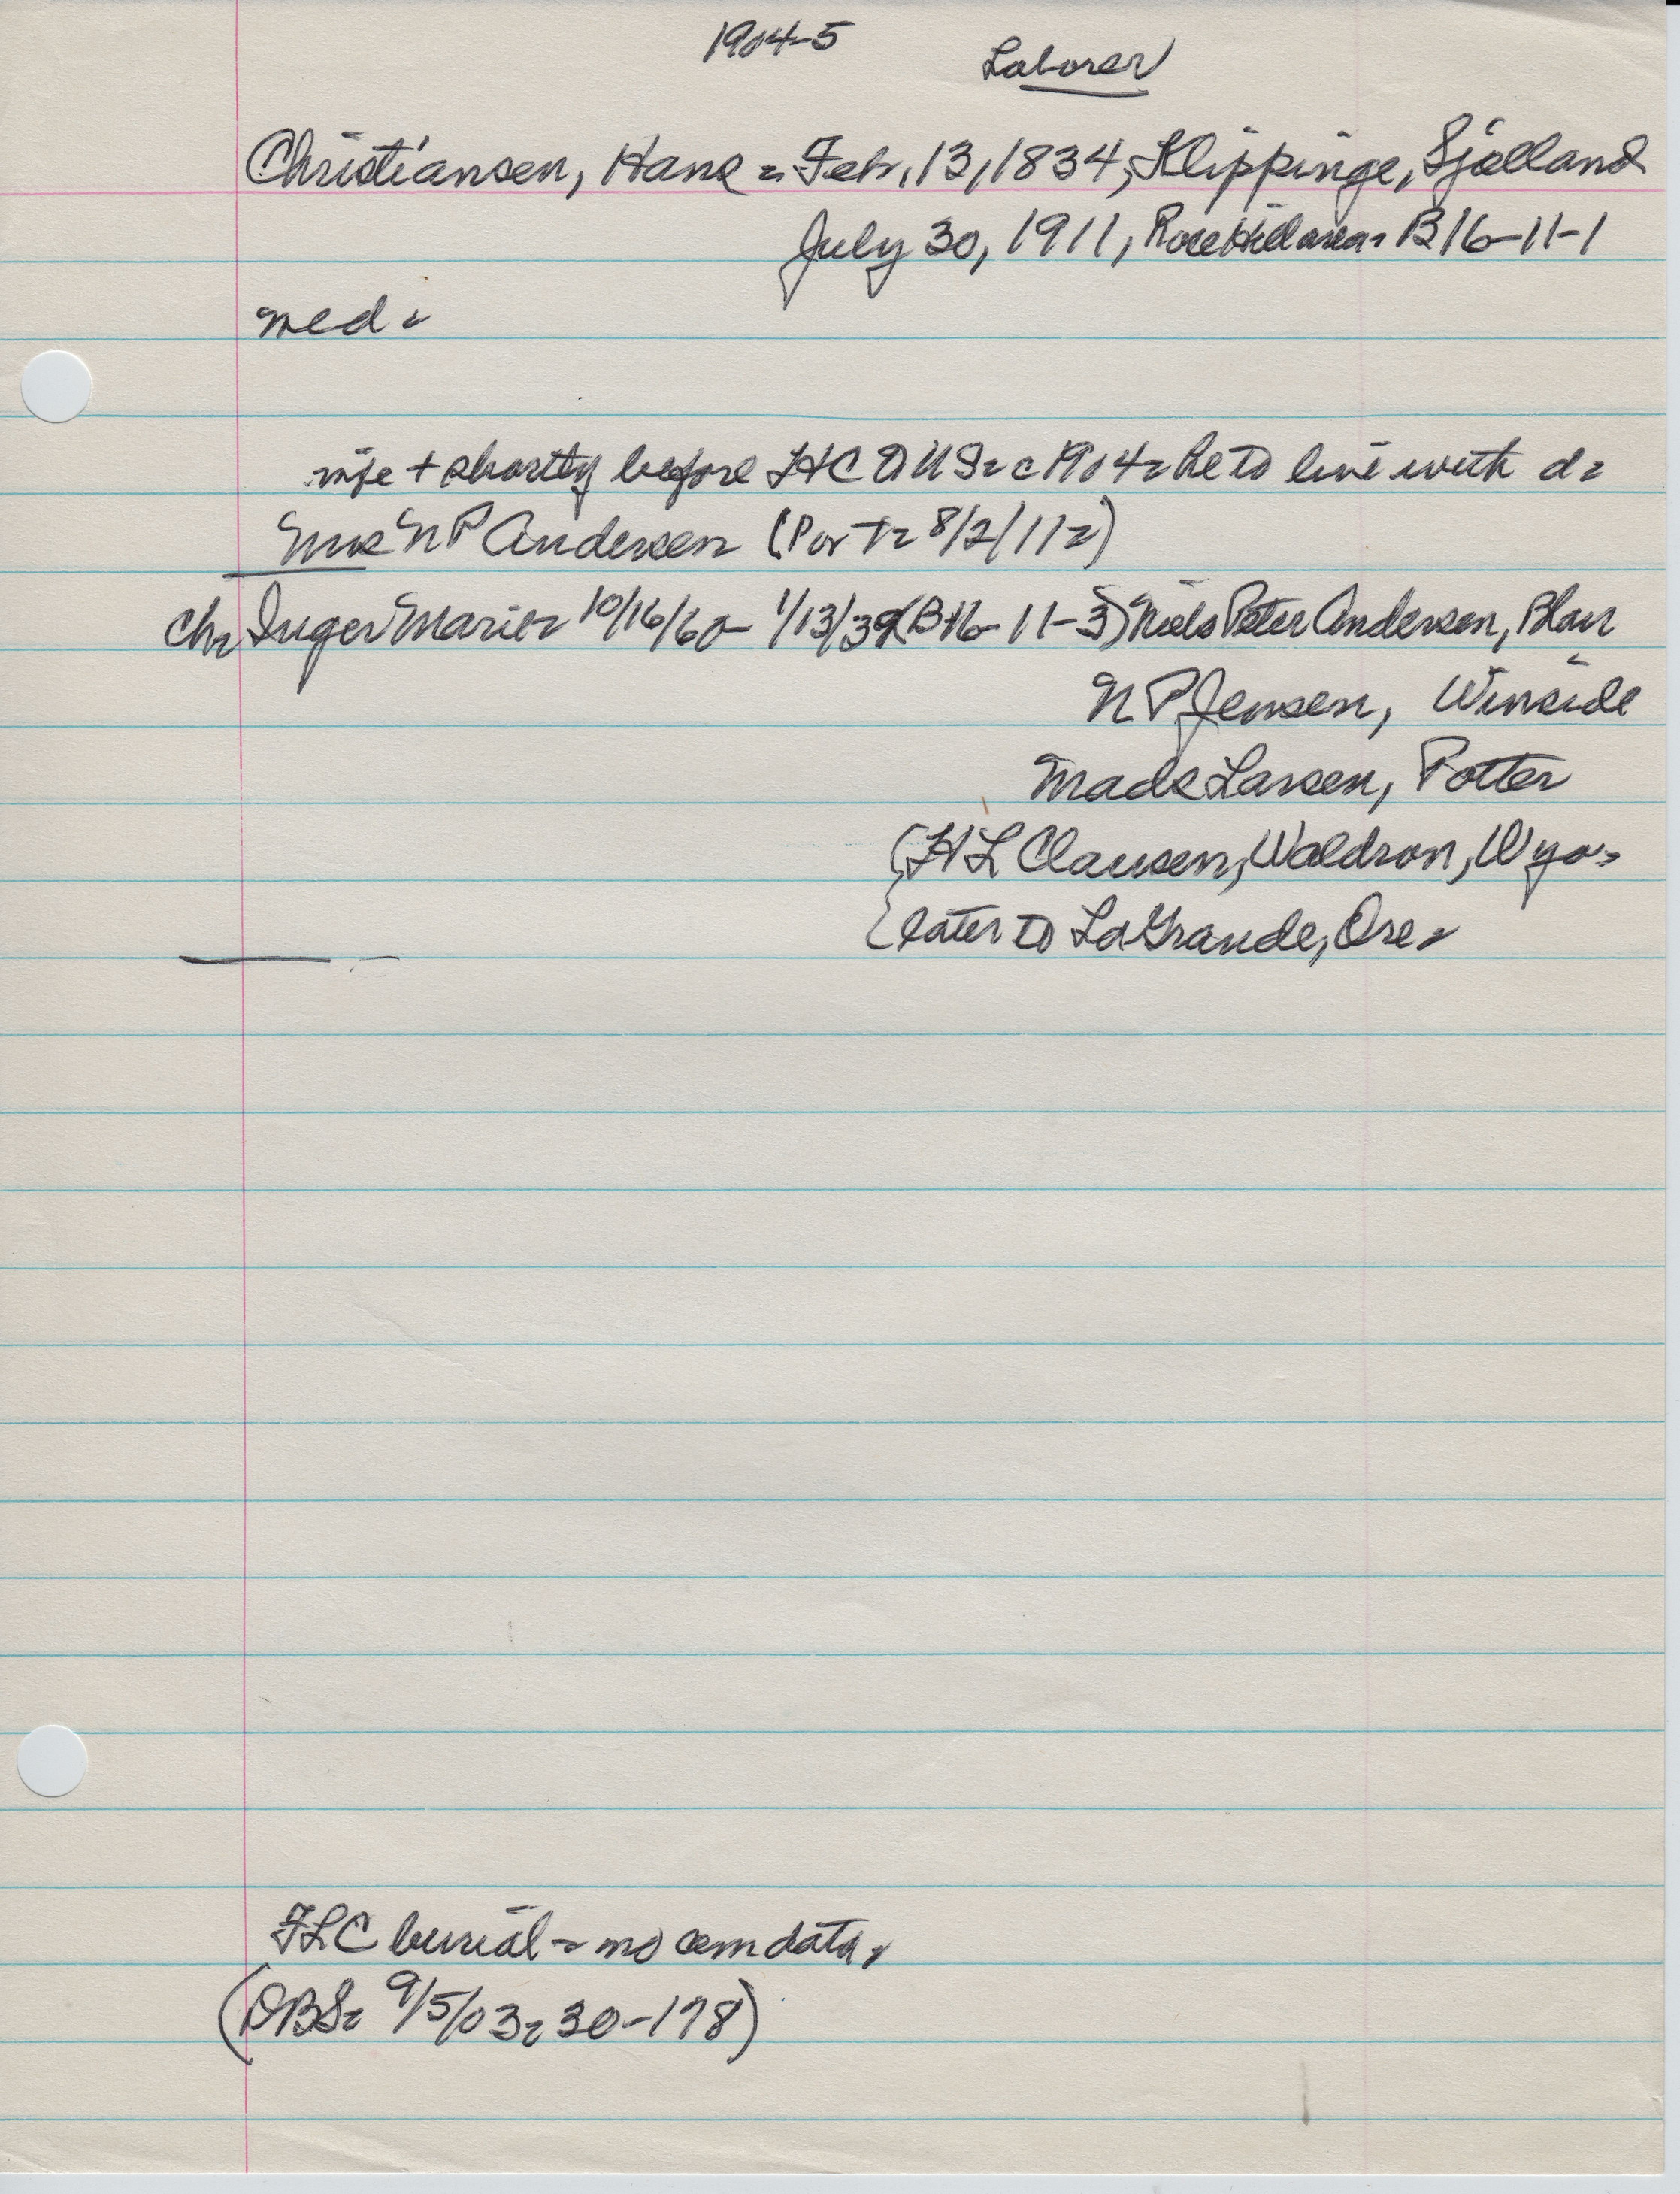 1904-5
Laborer
Christiansen, Hans = Feb. 13, 1834, Klippinge, Sjælland
July 30, 1911, Rose Hill area = B 16-11-1
med =
wife + shortly before HC US = c 1904 = he to live with d =
Mrs N P Andersen (Por T = 8/2/11 =)
Ch = Inger Marie = 10/16/60 - 1/13/39 (B 16-11-3) Niels Peter Andersen, Blair
N P Jensen, Winside
Mads Larsen, Potter
(H L Clausen, Waldron, Wyo =
later to LaGrande, Ore =
FLC burial = no cem data =
(OBS = 9/5/03 = 30-178)